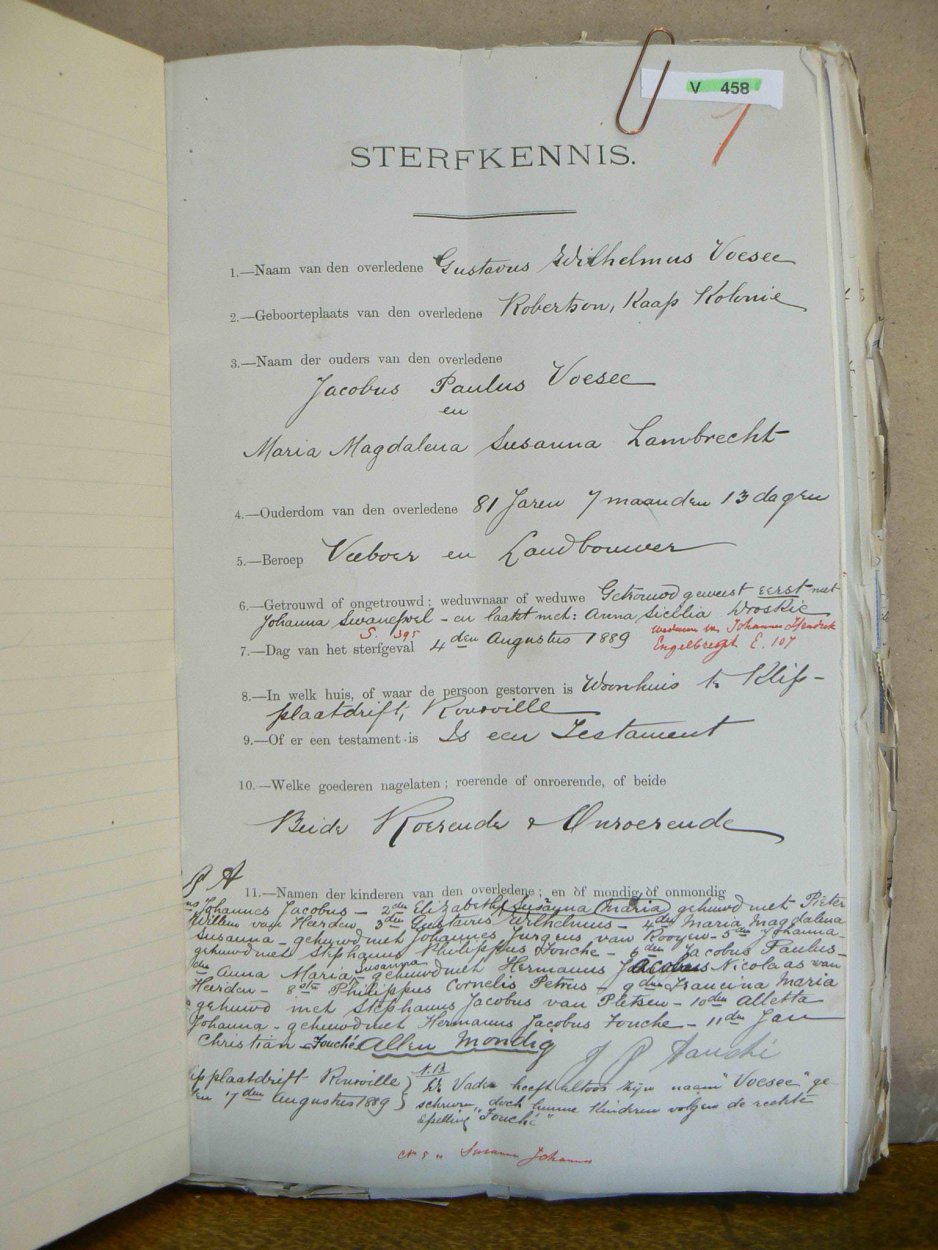 V 458
STERFKENNIS.
1.—Naam van den overledene Gustavus Wilhelmus Voesee
2.—Geboorteplaats van den overledene Robertson, Kaap Kolonie
3.—Naam der ouders van den overledene
Jacobus Paulus Voesee
en
Maria Magdalena Susanna Lambrecht
4.—Ouderdom van den overledene 81 Jaren 7 maanden 13 dagen
5.—Beroep Veeboer en Landbouwer
6.—Getrouwd of ongetrouwd; weduwnaar of weduwe Getrouwd geweest eerst met
Johanna Swanepoel - en laatst met: Anna Sicilia Droskie
S. 395 weduwe van Johannes Hendrik
7.—Dag van het sterfgeval 4den Augustus 1889 Engelbrecht E. 107
8.—In welk huis, of waar de persoon gestorven is Woonhuis te Klip-
plaatdrift, Rouxville
9.—Of er een testament is Is een Testament
10.—Welke goederen nagelaten; roerende of onroerende, of beide
Beide Roerende & Onroerende
11.—Namen der kinderen van den overledene; en òf mondig òf onmondig
Johannes Jacobus - 2den Elizabeth Susanna Maria gehuwd met Pieter
Willem van Heerden 3den Gustavus Wilhelmus - 4den Maria Magdalena
Susanna - gehuwd met Johannes Jurgens van Rooyen - 5den Johanna
gehuwd met Stephanus Philippus Fouche - 6den Jacobus Paulus -
Anna Maria Susanna - gehuwd met Hermanus Jacobus Nicolaas van
Heerden - 8ste Philippus Cornelis Petrus - 9den Francina Maria
gehuwd met Stephanus Jacobus van Pletsen - 10den Alletta
Johanna - gehuwd met Hermanus Jacobus Fouche - 11den Jan
Christian Fouché Allen Mondig
J P Fouché
plaatdrift Rouxville
7den Augustus 1889
N.B.
De Vader heeft altoos zijn naam "Voesee" ge-
schreven, doch hunne Kinderen volgen de rechte
spelling "Fouché"
Susann Johanna